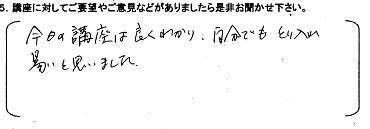 5. 講座に対してご要望やご意見などがありましたら是非お聞かせ下さい。
今日の講座は良くわかり、自分でもとり入れ
易いと思いました。